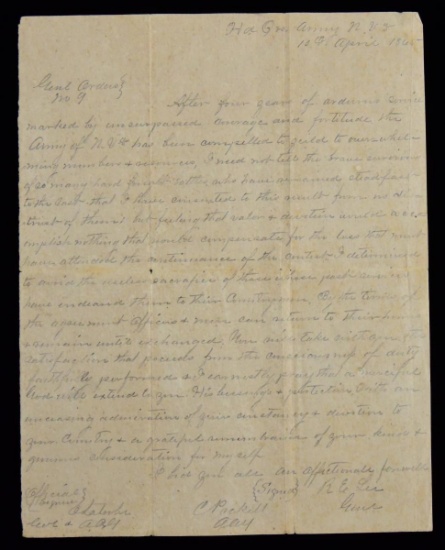 Hd Qrs Army N. Va
10th April 186
Genl Orders
No. 9
After four years of arduous service
marked by unsurpassed courage and fortitude the
Army of N. Va has been compelled to yield to overwhel-
ming numbers & resources, I need not tell the brave survivors
of so many hard fought battles who have remained steadfast
to the last that I have consented to this result from no dis-
trust of them; but feeling that valor & devotion could acc-
omplish nothing that would compensate for the loss that must
have attended the continuance of the contest I determined
to avoid the useless sacrifice of those whose past services
have endeared them to their Countrymen. By the terms of
the agreement officers & men can return to their homes
& remain until exchanged. You will take with you the
satisfaction that proceeds from the consciousness of duty
faithfully performed & I earnestly pray that a merciful
God will extend to you His blessing & protection. With an
unceasing admiration of your constancy & devotion to
your Country & a grateful remembrance of your kind &
generous consideration for myself
I bid you all an affectionate farewell
(Signed) R E Lee
Genl
Official
C
A A G